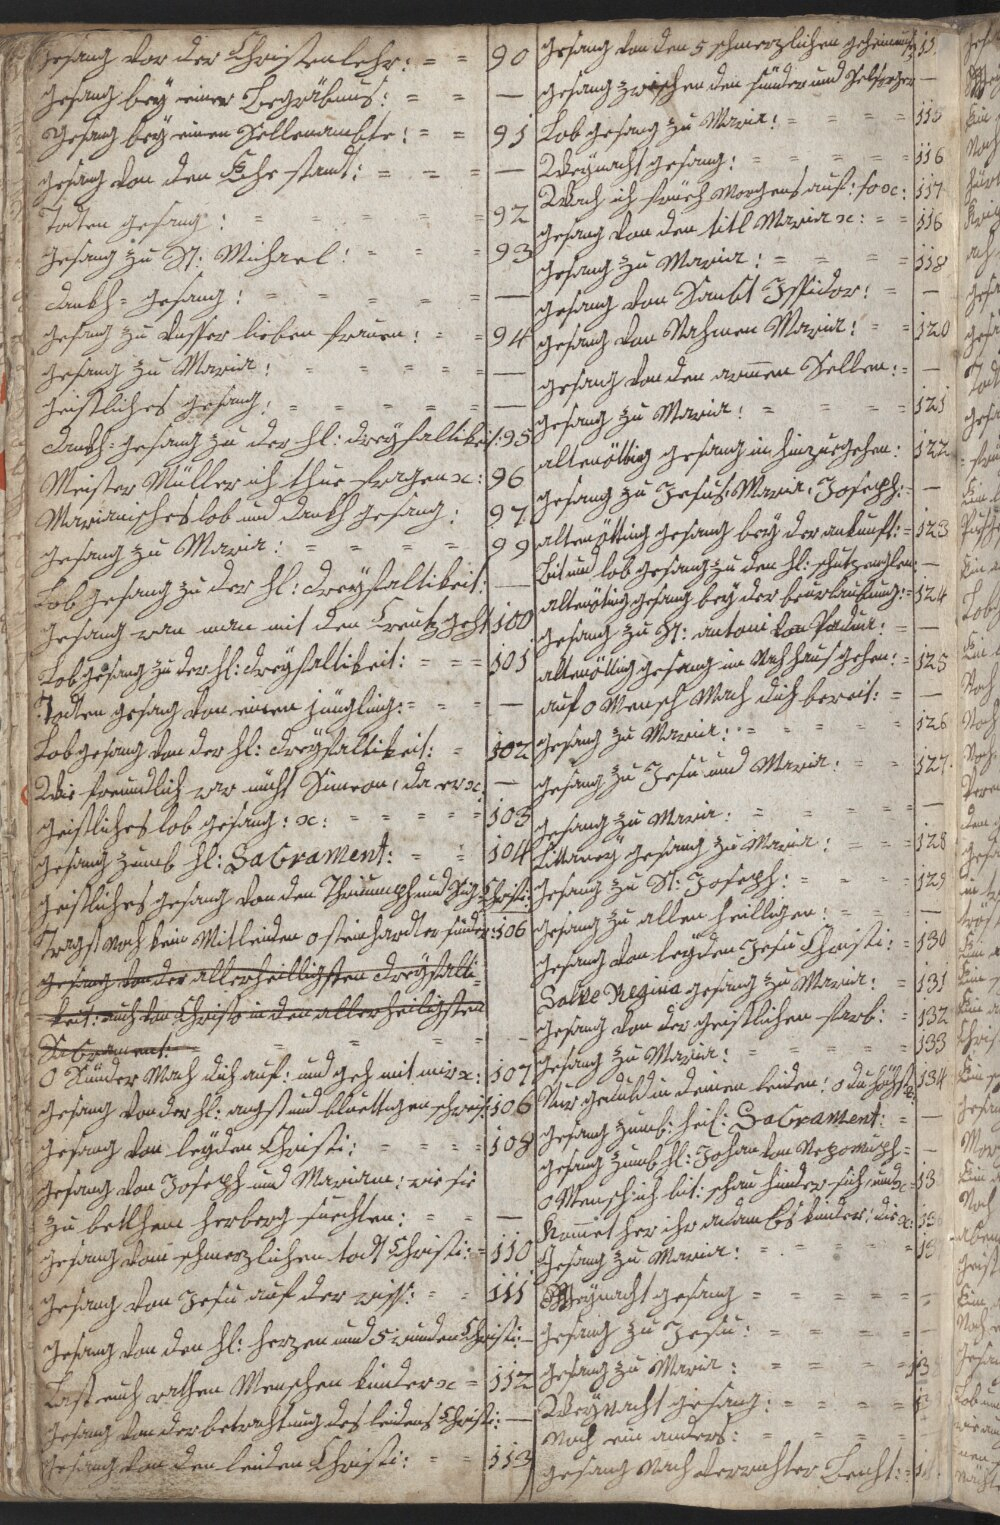 gesang vor der Christenlehr: = = 90
gesang bey einer Begräbnus: = = —
gesang bey einen Sellenambte: = = 91
gesang von den Ehe standt: = = = —
Todten gesang: = = = = = 92
gesang zu St: Michael: = = = 93
Dankh = gesang: = = = = = —
gesang zu unsser lieben frauen: = = 94
gesang zu Maria: = = = = = —
geistliches gesang: = = = = = —
Dankh = gesang zu der hl: dreyfaltikeit: 95
Meister Müller ich thue fragen x: 96
Marianisches lob und dankh gesang: 97
gesang zu Maria: = = = = 99
Lob gesang zu der hl: dreyfaltikeit: —
gesang wan man mit den Creutz geht 100
Lob gesang zu der hl: dreyfaltikeit: = = = 101
Todten gesang von einen jüngling: = = = —
Lob gesang von der hl: dreyfaltikeit: = 102
Wie freundlich war nicht Simeon, da er x: —
geistliches lob gesang: x: = = = = = 103
gesang zumb hl: SaCrament: = = 104
geistliches gesang von den Thriumph und Christi:
Tragst noch kein Mitleiden o steinhardter sünder: 106
gesang von der allerheilligsten dreyfalti-
keit: auch von Christo in den allerheiligsten
SaCrament: = = = = = —
O Sünder Mach dich auf: und geh mit mir x: 107
gesang von der hl: angst und bluettigen schweis: 106
gesang von leyden Christi: = = = = 108
gesang von Joseph und Mariam: wie sie
zu betlhem herberg suechten: = = —
gesang vom schmerzlichen todt Christi: = 110
gesang von Jesu auf der wiss: = = 111
gesang von den hl: herzen und 5 wunden Christi: —
Last euch rathen Menschen kinder x = 112
gesang von der betrachtung des leidens Christi: —
gesang von den leiden Christi: = = 113
gesang von den 5 schmerzlichen geheimnus
gesang zwischen den sünder und —
Lob gesang zu Maria: = = = = 115
Weynacht gesang: = = = = = 116
Wach ich frueh Morgens auf: so x: 117
gesang von den titl Maria x: = = 116
gesang zu Maria: = = = = 118
gesang von Sanbt Issidor: = —
gesang von Nahmen Maria: = = 120
gesang von den armen Sellen: = —
gesang zu Maria: = = = = 121
altenötting gesang im hinzuegehen: 122
gesang zu Jesus, Maria, Joseph: —
altenötting gesang bey der ankunft: = 123
Bit und lob gesang zu den hl: schutzenglen: —
altenöting gesang bey der beurlaubung: = 124
gesang zu St: antoni von Padua: = —
altenötting gesang im Nach haus gehen: = 125
auf o Mensch Mach dich bereit: = —
gesang zu Maria: = = = = 126
gesang zu Jesu und Maria: = = 127
gesang zu Maria: = = = = —
Littaney gesang zu Maria: = = = 128
gesang zu St: Joseph: = = = = 129
gesang zu allen heilligen: = = = —
gesang von leyden Jesu Christi: = 130
Salve Regina gesang zu Maria: = 131
gesang von der geistlichen farb: = 132
gesang zu Maria: = = = = = 133
Nur geduld in deinen leiden: o du höchste: 134
gesang zumb: heil: SaCrament: = —
gesang zumb hl: Johan von Nepomuzh = —
O Mensch ich bit: schau hinder sich, und x = 13
Kommet her ihr adam Es kinder, die x: 13
Gesang zu Maria: = = = = = 13
Weynacht gesang = = = = = —
gesang zu Jesu: = = = = = —
gesang zu Maria: = = = = 13
Weynacht gesang: = = = = 1
Noch ein anders: = = = = =
gesang Nach verrichter Beicht: = 1